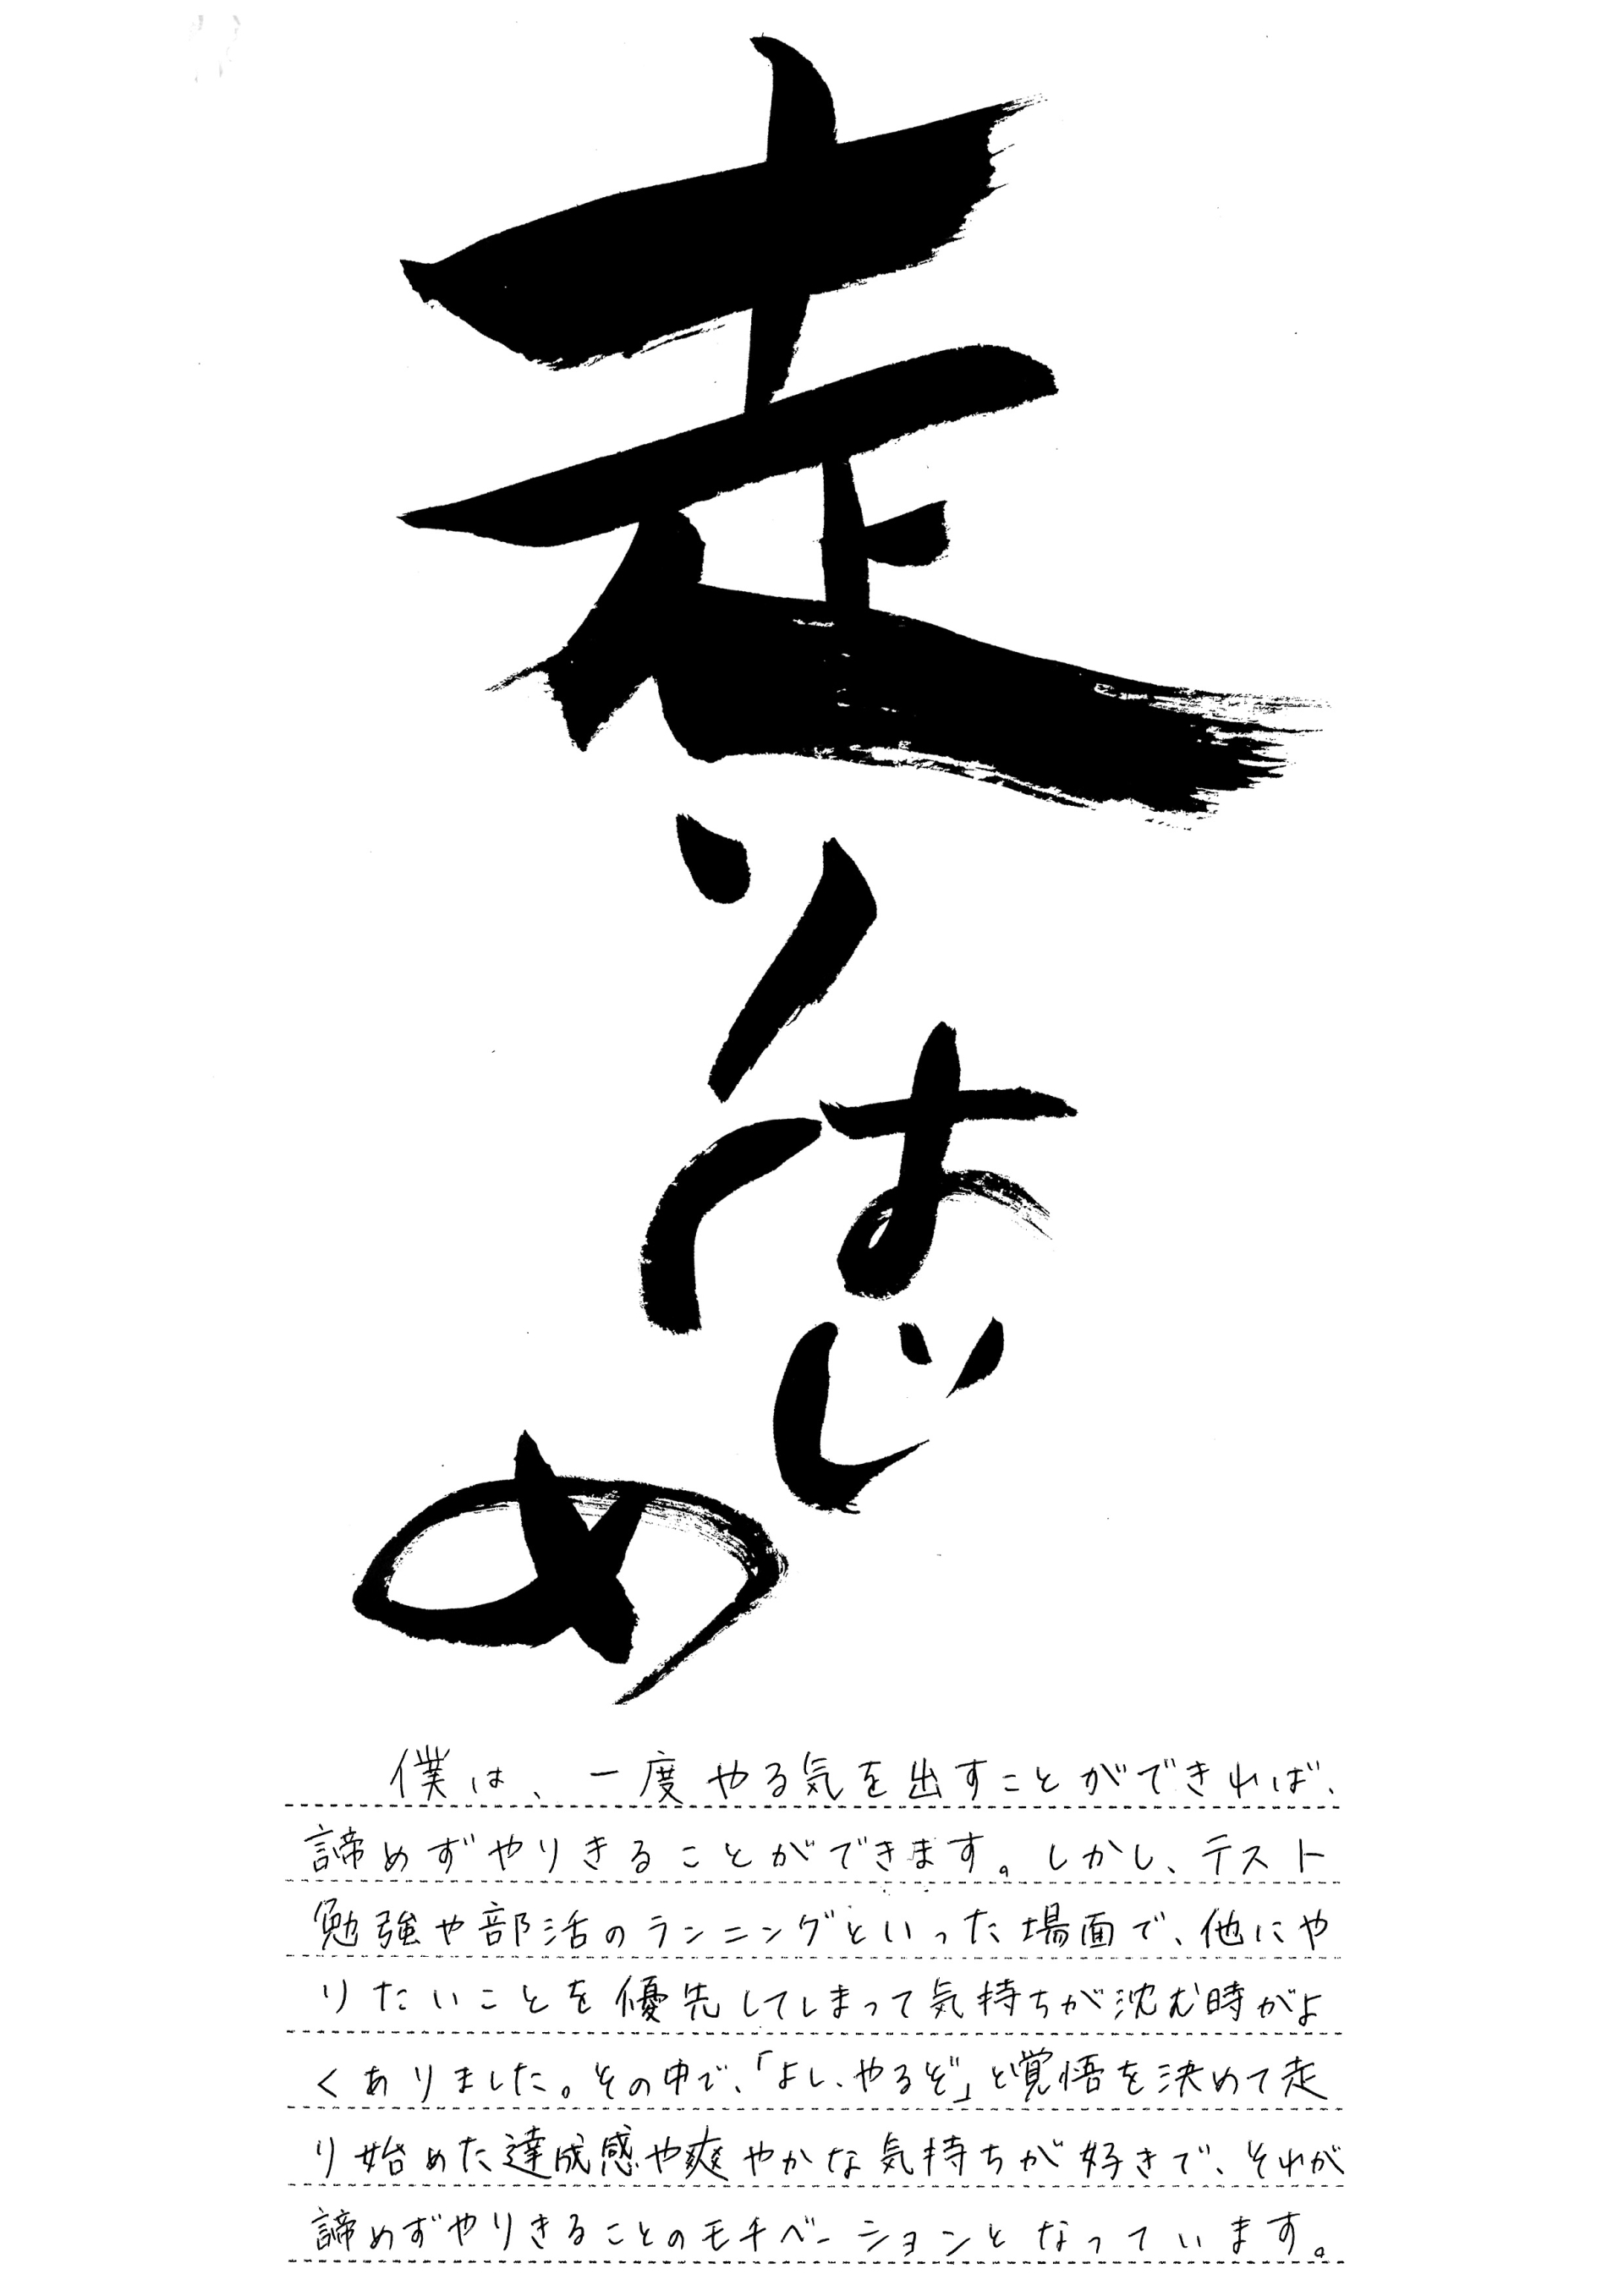 走りはじめ
僕は、一度やる気を出すことができれば、
諦めずやりきることができます。しかし、テスト
勉強や部活のランニングといった場面で、他にや
りたいことを優先してしまって気持ちが沈む時がよ
くありました。その中で、「よし、やるぞ」と覚悟を決めて走
り始めた達成感や爽やかな気持ちが好きで、それが
諦めずやりきることのモチベーションとなっています。